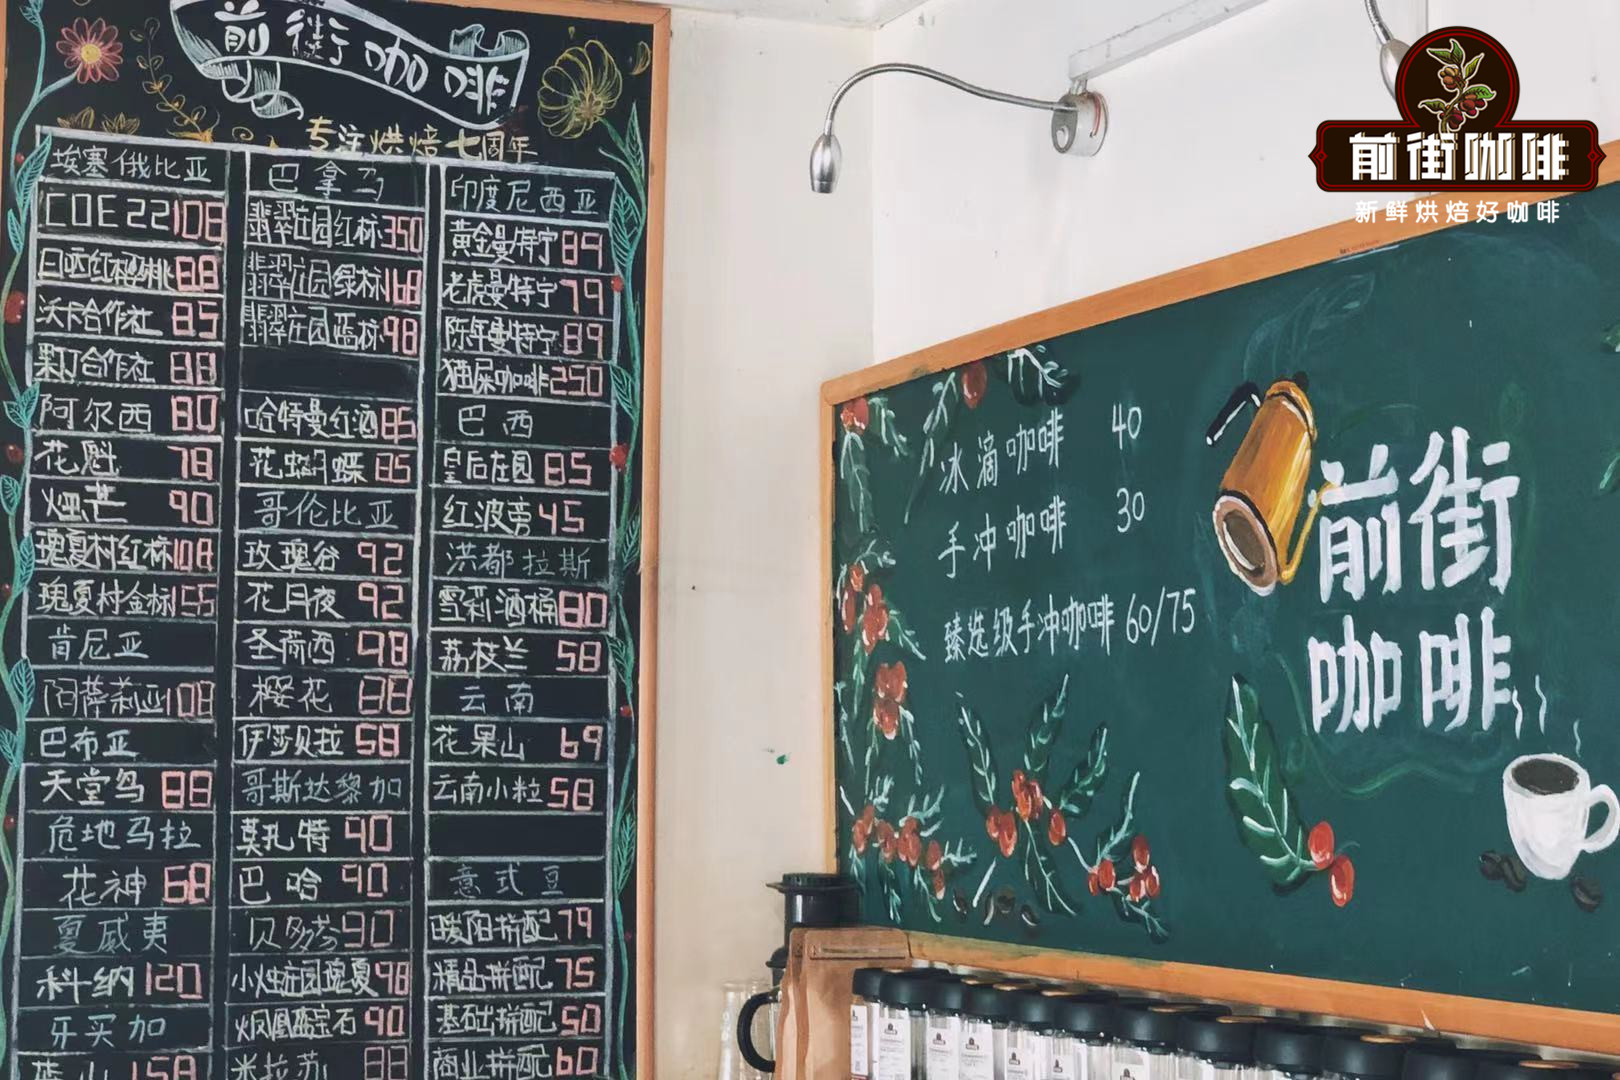 前街咖啡
专注烘焙七周年
埃塞俄比亚
COE 22 108
日晒红樱桃 88
沃卡合作社 85
果丁丁合作社 88
阿尔西 80
花魁 78
烟芒 90
瑰夏村红标 108
瑰夏村金标 155
肯尼亚
阿萨莉亚 108
巴布亚
天堂鸟 88
危地马拉
花神 68
夏威夷
科纳 120
牙买加
蓝山 158
巴拿马
翡翠庄园红标 350
翡翠庄园绿标 168
翡翠庄园蓝标 98
哈特曼红酒 85
花蝴蝶 85
哥伦比亚
玫瑰谷 92
花月夜 92
圣荷西 98
樱花 88
伊莎贝拉 58
哥斯达黎加
莫扎特 90
巴哈 90
贝多芬 90
小烛庄园瑰夏 98
火凤凰蓝宝石 90
米拉苏 88
印度尼西亚
黄金曼特宁 89
老虎曼特宁 79
陈年曼特宁 89
猫屎咖啡 250
巴西
皇后庄园 85
红波旁 45
洪都拉斯
雪莉酒桶 80
荔枝兰 58
云南
花果山 69
云南小粒 58
意式豆
暖阳拼配 79
精品拼配 75
基础拼配 50
商业拼配 60
冰滴咖啡 40
手冲咖啡 30
臻选级手冲咖啡 60/75
前街
咖啡
前街咖啡
新鲜烘焙好咖啡